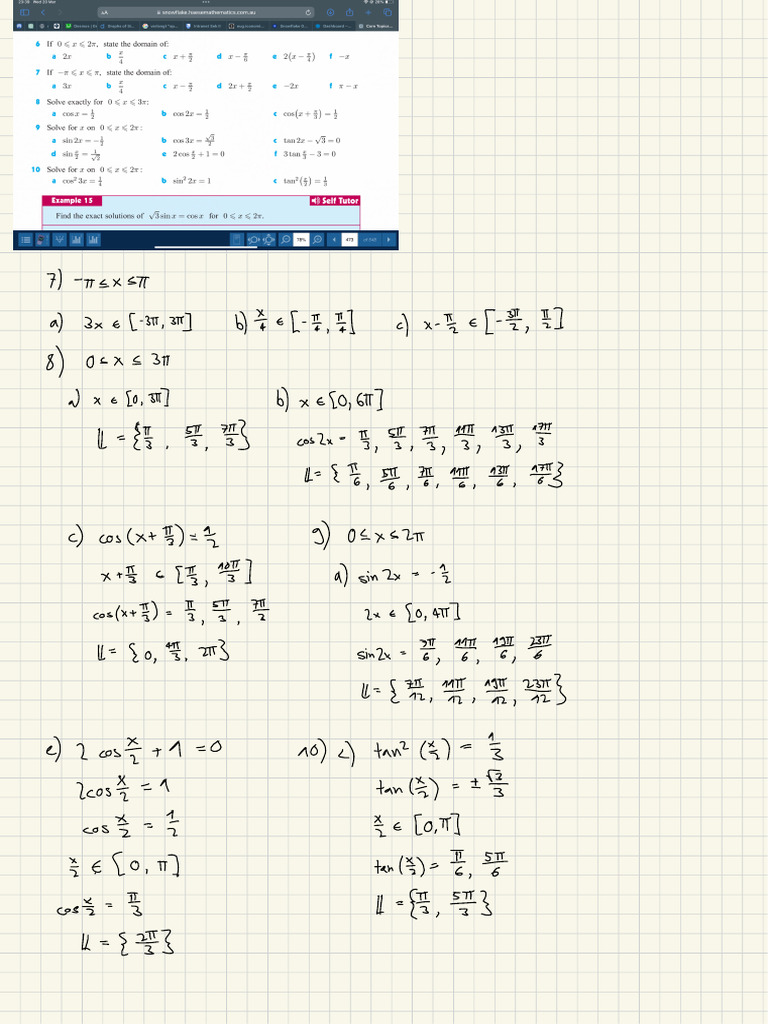 snowflake.haesemathematics.com.au
6 If 0 ⩽ x ⩽ 2π, state the domain of:
a 2x b x/4 c x + π/2 d x − π/6 e 2(x − π/4) f −x
7 If −π ⩽ x ⩽ π, state the domain of:
a 3x b x/4 c x − π/2 d 2x + π/2 e −2x f π − x
8 Solve exactly for 0 ⩽ x ⩽ 3π:
a cos x = 1/2 b cos 2x = 1/2 c cos(x + π/3) = 1/2
9 Solve for x on 0 ⩽ x ⩽ 2π:
a sin 2x = −1/2 b cos 3x = √3/2 c tan 2x − √3 = 0
d sin x/2 = 1/√2 e 2 cos x/2 + 1 = 0 f 3 tan x/2 − 3 = 0
10 Solve for x on 0 ⩽ x ⩽ 2π:
a cos² 3x = 1/4 b sin² 2x = 1 c tan²(x/2) = 1/3
Example 15 Self Tutor
Find the exact solutions of √3 sin x = cos x for 0 ⩽ x ⩽ 2π.
78% 473
7) -π ≤ x ≤ π
a) 3x ∈ [-3π, 3π] b) x/4 ∈ [-π/4, π/4] c) x - π/2 ∈ [-3π/2, π/2]
8) 0 ≤ x ≤ 3π
a) x ∈ [0, 3π]
𝕃 = {π/3, 5π/3, 7π/3}
b) x ∈ [0, 6π]
cos2x = π/3, 5π/3, 7π/3, 11π/3, 13π/3, 17π/3
𝕃 = {π/6, 5π/6, 7π/6, 11π/6, 13π/6, 17π/6}
c) cos(x + π/3) = 1/2
x + π/3 ∈ [π/3, 10π/3]
cos(x + π/3) = π/3, 5π/3, 7π/3
𝕃 = {0, 4π/3, 2π}
9) 0 ≤ x ≤ 2π
a) sin 2x = -1/2
2x ∈ [0, 4π]
sin2x = 7π/6, 11π/6, 19π/6, 23π/6
𝕃 = {7π/12, 11π/12, 19π/12, 23π/12}
e) 2 cos x/2 + 1 = 0
2cos x/2 = 1
cos x/2 = 1/2
x/2 ∈ [0, π]
cos x/2 = π/3
𝕃 = {2π/3}
10) c) tan² (x/2) = 1/3
tan (x/2) = ± √3/3
x/2 ∈ [0, π]
tan (x/2) = π/6, 5π/6
𝕃 = {π/3, 5π/3}